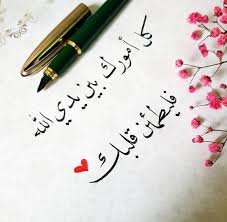 كل أمورك بين يدي الله
فليطمئن قلبك